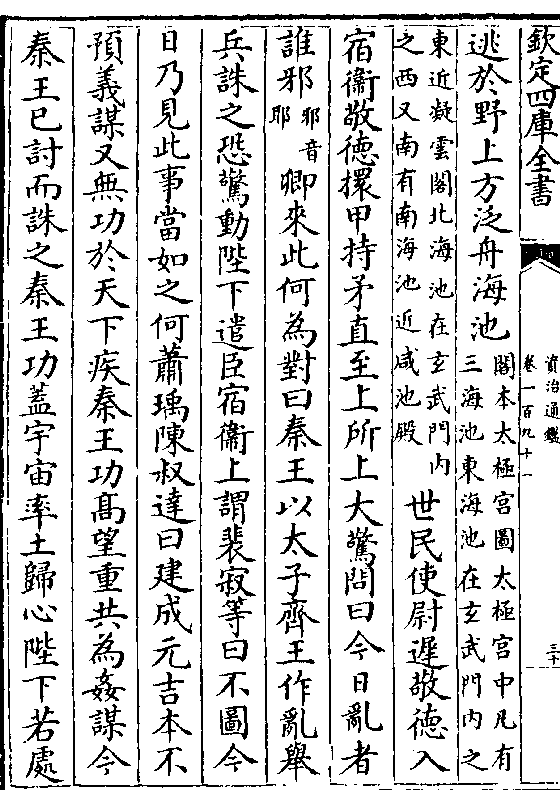 欽定四庫全書
資治通鑑
卷一百九十一
三十
逃於野上方泛舟海池閣本太極宮圖太極宮中凡有
三海池東海池在玄武門內之
東近凝雲閣北海池在玄武門內
之西又南有南海池近咸池殿世民使尉遲敬德入
宿衞敬德擐甲持矛直至上所上大驚問曰今日亂者
誰邪邪音
耶卿來此何為對曰秦王以太子齊王作亂舉
兵誅之恐驚動陛下遣臣宿衞上謂裴寂等曰不圖今
日乃見此事當如之何蕭瑀陳叔達曰建成元吉本不
預義謀又無功於天下疾秦王功髙望重共為姦謀今
秦王已討而誅之秦王功蓋宇宙率土歸心陛下若處